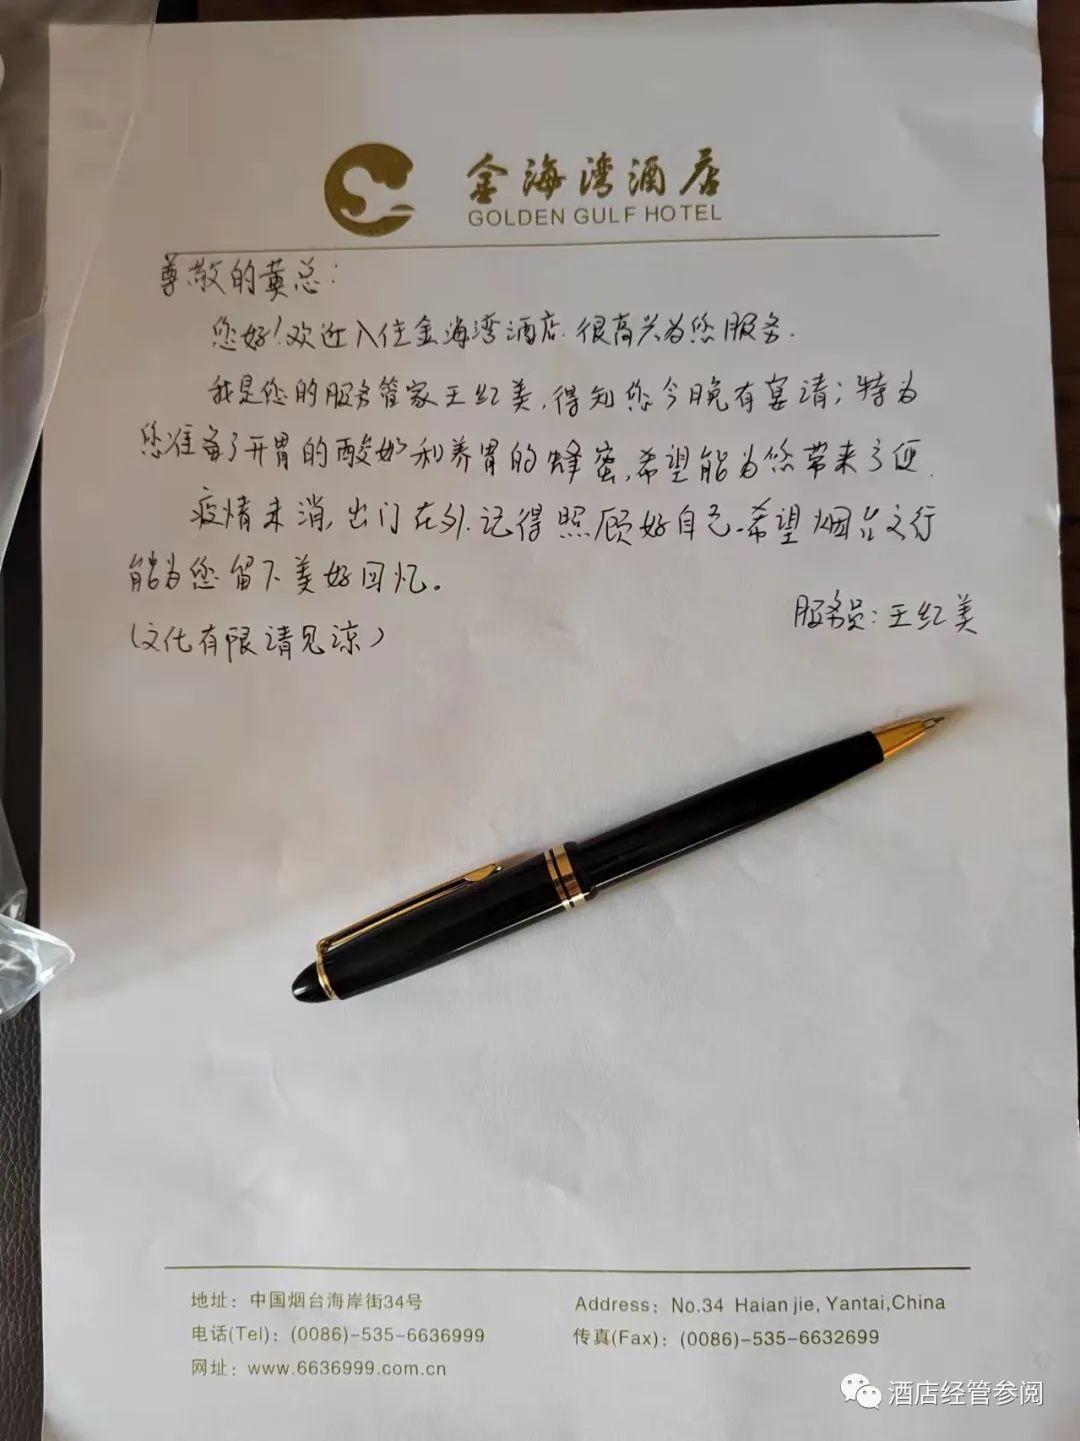 金海湾酒店
GOLDEN GULF HOTEL
尊敬的黄总：
您好！欢迎入住金海湾酒店.很高兴为您服务.
我是您的服务管家王红美,得知您今晚有宴请；特为
您准备了开胃的酸奶和养胃的蜂蜜,希望能为您带来方便.
疫情未消,出门在外.记得照顾好自己.希望烟台之行
能为您留下美好回忆。
服务员：王红美
(文化有限请见凉)
地址：中国烟台海岸街34号
Address：No.34 Haian jie, Yantai,China
电话(Tel)：(0086)-535-6636999
传真(Fax)：(0086)-535-6632699
网址：www.6636999.com.cn
酒店经管参阅